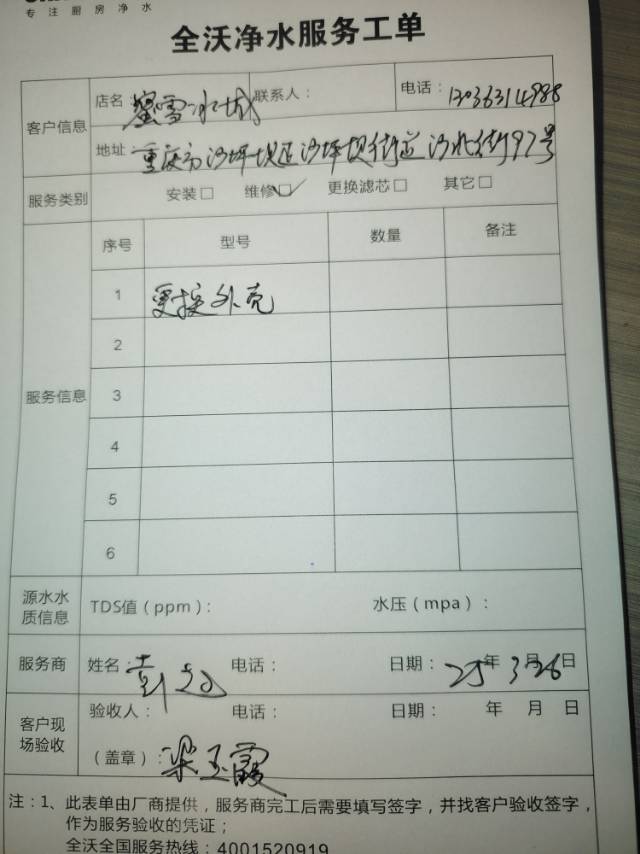 专注厨房净水
全沃净水服务工单
客户信息 店名 蜜雪冰城 联系人： 电话： 13036314988
地址 重庆市沙坪坝区沙坪坝街道沙北街97号
服务类别 安装□ 维修☑ 更换滤芯□ 其它□
服务信息 序号 型号 数量 备注
1 更换外壳
2
3
4
5
6
源水水质信息 TDS值（ppm）： 水压（mpa）：
服务商 姓名 电话： 日期： 25年3月26日
客户现场验收 验收人： 电话： 日期： 年 月 日
（盖章）： 梁玉霞
注：1、此表单由厂商提供，服务商完工后需要填写签字，并找客户验收签字，
作为服务验收的凭证；
全沃全国服务热线：4001520919